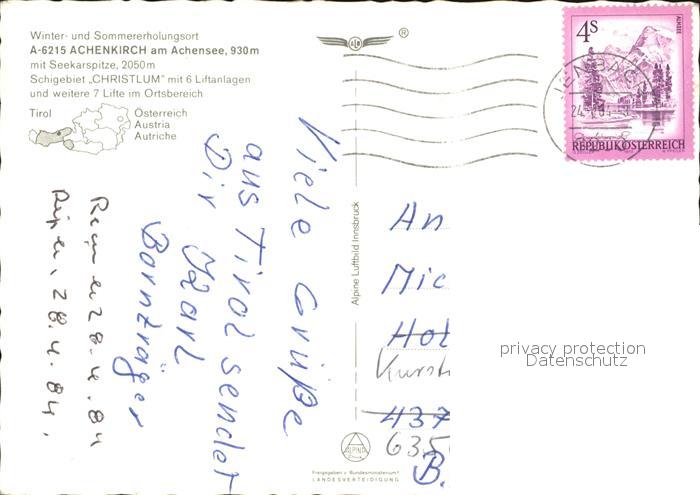 Winter- und Sommererholungsort
A-6215 ACHENKIRCH am Achensee, 930m
mit Seekarspitze, 2050m
Schigebiet „CHRISTLUM" mit 6 Liftanlagen
und weitere 7 Lifte im Ortsbereich
Tirol
Österreich
Austria
Autriche
Viele Grüße
aus Tirol sendet
Dir Karl
Bornträger
28.4.84
28.4.84.
Alpine Luftbild Innsbruck
ALPINE
Freigegeben v. Bundesministerium f.
LANDESVERTEIDIGUNG
4S
ALMSEE
JENBACH
REPUBLIK ÖSTERREICH
An
Mic
Hot
437
635
B.
privacy protection
Datenschutz